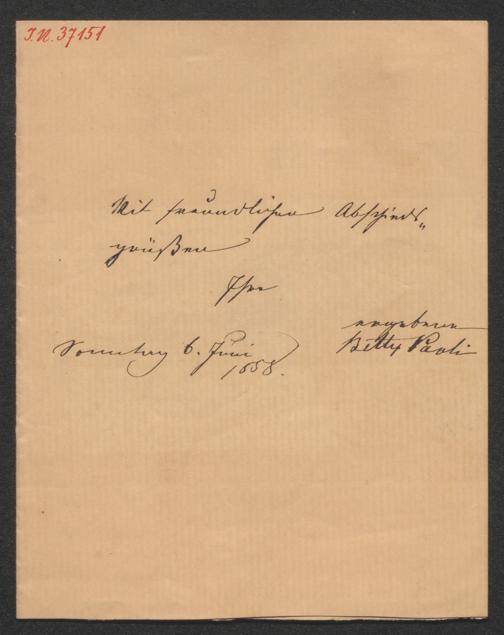 I.N. 37151
Mit freundlichen Abschieds„
grüßen
Ihre
ergebene
Betty Paoli
Sonntag 6. Juni
1858.